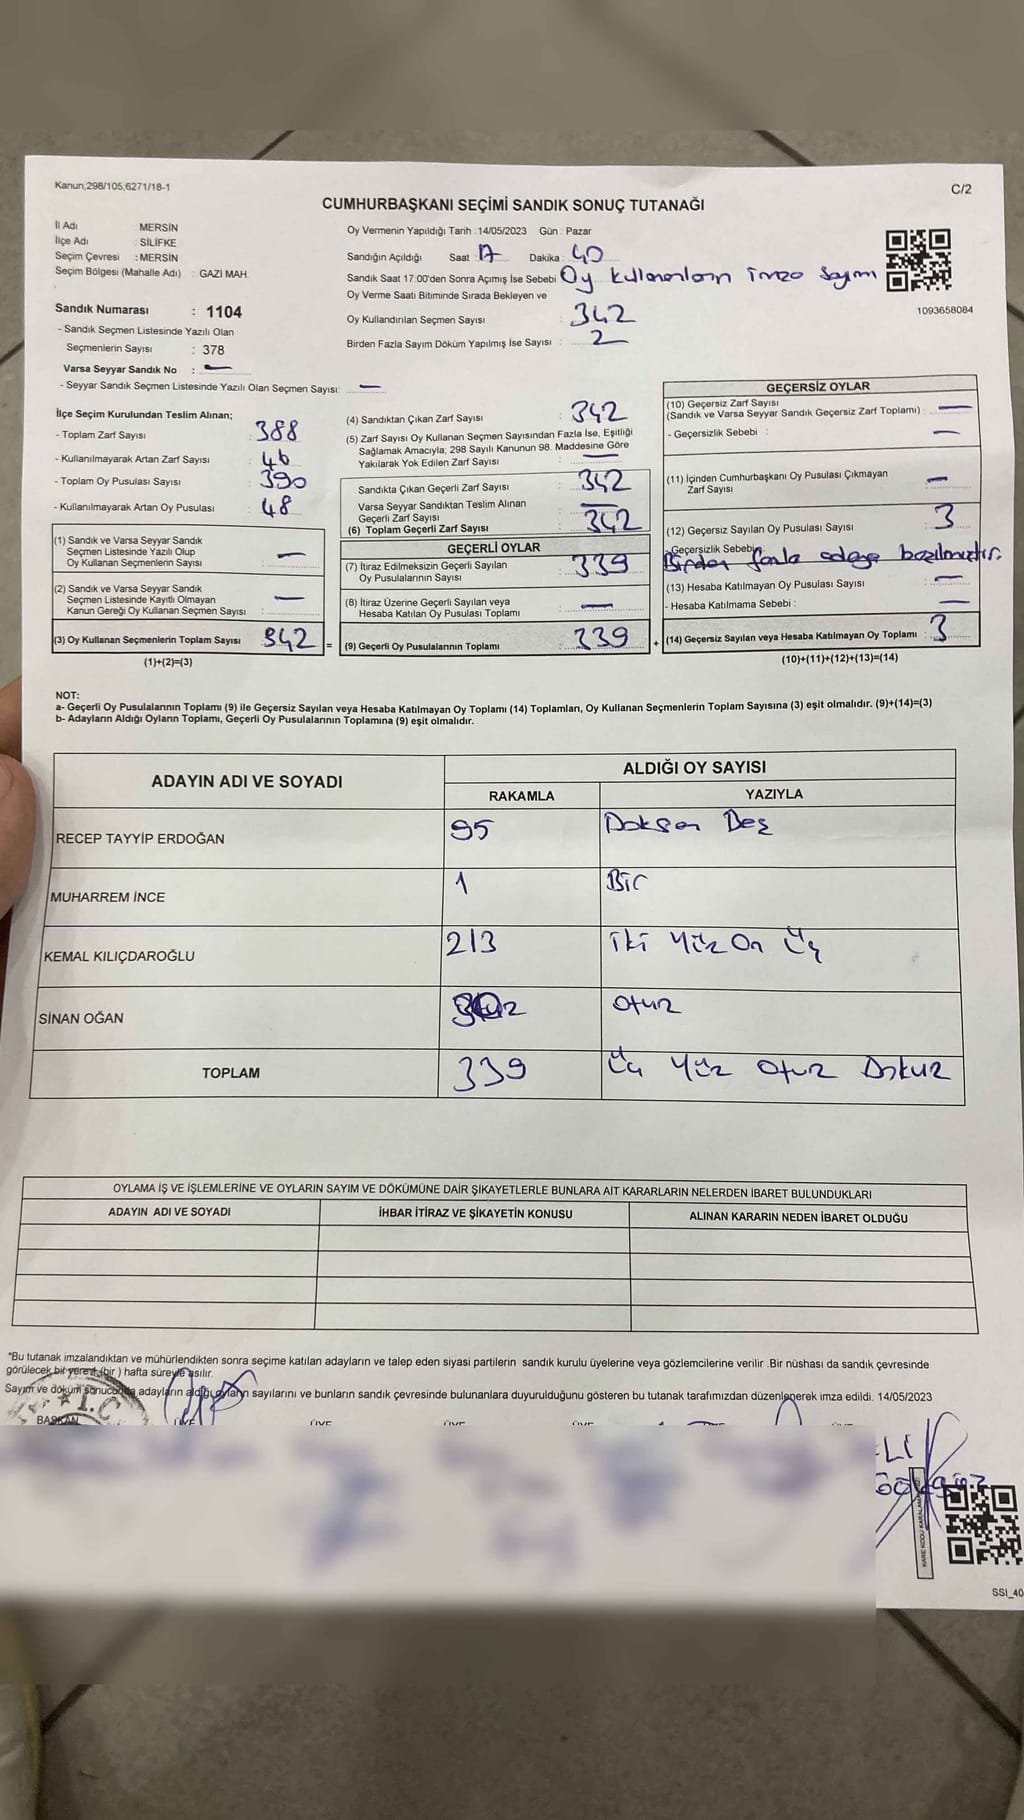 Kanun;298/105,6271/18-1
C/2
CUMHURBAŞKANI SEÇİMİ SANDIK SONUÇ TUTANAĞI
İl Adı : MERSİN
İlçe Adı : SİLİFKE
Seçim Çevresi : MERSİN
Seçim Bölgesi (Mahalle Adı) : GAZİ MAH.
Sandık Numarası : 1104
- Sandık Seçmen Listesinde Yazılı Olan
Seçmenlerin Sayısı : 378
Varsa Seyyar Sandık No : —
- Seyyar Sandık Seçmen Listesinde Yazılı Olan Seçmen Sayısı: —
Oy Vermenin Yapıldığı Tarih :14/05/2023 Gün : Pazar
Sandığın Açıldığı Saat 17 Dakika : 40
Sandık Saat 17:00'den Sonra Açımış İse Sebebi Oy kullananların imza sayımı
Oy Verme Saati Bitiminde Sırada Bekleyen ve
Oy Kullandırılan Seçmen Sayısı : 342
Birden Fazla Sayım Döküm Yapılmış İse Sayısı : 2
1093658084
İlçe Seçim Kurulundan Teslim Alınan;
- Toplam Zarf Sayısı : 388
- Kullanılmayarak Artan Zarf Sayısı : 46
- Toplam Oy Pusulası Sayısı : 390
- Kullanılmayarak Artan Oy Pusulası : 48
(1) Sandık ve Varsa Seyyar Sandık
Seçmen Listesinde Yazılı Olup
Oy Kullanan Seçmenlerin Sayısı : —
(2) Sandık ve Varsa Seyyar Sandık
Seçmen Listesinde Kayıtlı Olmayan
Kanun Gereği Oy Kullanan Seçmen Sayısı : —
(3) Oy Kullanan Seçmenlerin Toplam Sayısı 342 =
(1)+(2)=(3)
(4) Sandıktan Çıkan Zarf Sayısı : 342
(5) Zarf Sayısı Oy Kullanan Seçmen Sayısından Fazla İse, Eşitliği
Sağlamak Amacıyla; 298 Sayılı Kanunun 98. Maddesine Göre
Yakılarak Yok Edilen Zarf Sayısı : —
Sandıkta Çıkan Geçerli Zarf Sayısı : 342
Varsa Seyyar Sandıktan Teslim Alınan
Geçerli Zarf Sayısı : —
(6) Toplam Geçerli Zarf Sayısı : 342
GEÇERLİ OYLAR
(7) İtiraz Edilmeksizin Geçerli Sayılan
Oy Pusulalarının Sayısı : 339
(8) İtiraz Üzerine Geçerli Sayılan veya
Hesaba Katılan Oy Pusulası Toplamı : —
(9) Geçerli Oy Pusulalarının Toplamı : 339 +
GEÇERSİZ OYLAR
(10) Geçersiz Zarf Sayısı
(Sandık ve Varsa Seyyar Sandık Geçersiz Zarf Toplamı) : —
- Geçersizlik Sebebi : —
(11) İçinden Cumhurbaşkanı Oy Pusulası Çıkmayan
Zarf Sayısı : —
(12) Geçersiz Sayılan Oy Pusulası Sayısı : 3
- Geçersizlik Sebebi : Birden fazla adaya basılmıştır.
(13) Hesaba Katılmayan Oy Pusulası Sayısı : —
- Hesaba Katılmama Sebebi : —
(14) Geçersiz Sayılan veya Hesaba Katılmayan Oy Toplamı : 3
(10)+(11)+(12)+(13)=(14)
NOT:
a- Geçerli Oy Pusulalarının Toplamı (9) ile Geçersiz Sayılan veya Hesaba Katılmayan Oy Toplamı (14) Toplamları, Oy Kullanan Seçmenlerin Toplam Sayısına (3) eşit olmalıdır. (9)+(14)=(3)
b- Adayların Aldığı Oyların Toplamı, Geçerli Oy Pusulalarının Toplamına (9) eşit olmalıdır.
ADAYIN ADI VE SOYADI
ALDIĞI OY SAYISI
RAKAMLA YAZIYLA
RECEP TAYYİP ERDOĞAN 95 Doksan Beş
MUHARREM İNCE 1 Bir
KEMAL KILIÇDAROĞLU 213 İki Yüz On Üç
SİNAN OĞAN Otuz
TOPLAM 339 Üç Yüz Otuz Dokuz
OYLAMA İŞ VE İŞLEMLERİNE VE OYLARIN SAYIM VE DÖKÜMÜNE DAİR ŞİKAYETLERLE BUNLARA AİT KARARLARIN NELERDEN İBARET BULUNDUKLARI
ADAYIN ADI VE SOYADI İHBAR İTİRAZ VE ŞİKAYETİN KONUSU ALINAN KARARIN NEDEN İBARET OLDUĞU
*Bu tutanak imzalandıktan ve mühürlendikten sonra seçime katılan adayların ve talep eden siyasi partilerin sandık kurulu üyelerine veya gözlemcilerine verilir .Bir nüshası da sandık çevresinde
görülecek bir yere (bir ) hafta süreyle asılır.
Sayım ve döküm sonucunda adayların aldığı oyların sayılarını ve bunların sandık çevresinde bulunanlara duyurulduğunu gösteren bu tutanak tarafımızdan düzenlenerek imza edildi. 14/05/2023
T.C
BAŞKAN ÜYE ÜYE ÜYE ÜYE
SSI_40